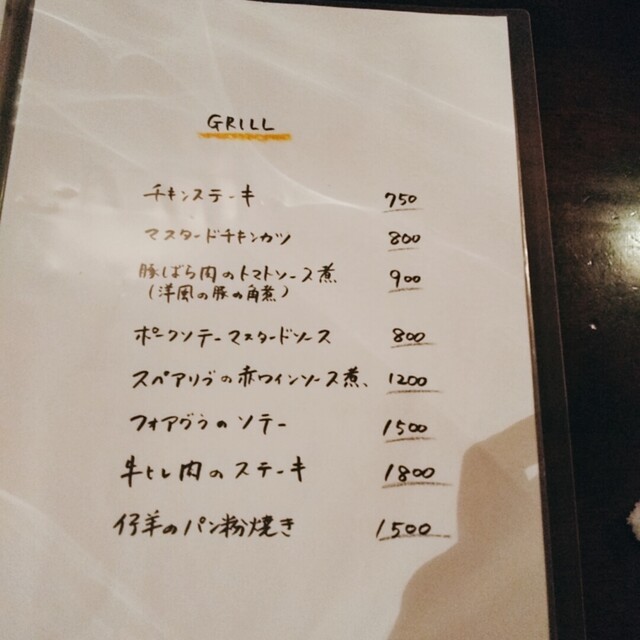 GRILL
チキンステーキ 750
マスタードチキンカツ 800
豚ばら肉のトマトソース煮 900
(洋風の豚の角煮)
ポークソテーマスタードソース 800
スペアリブの赤ワインソース煮、 1200
フォアグラのソテー 1500
牛ヒレ肉のステーキ 1800
仔羊のパン粉焼き 1500